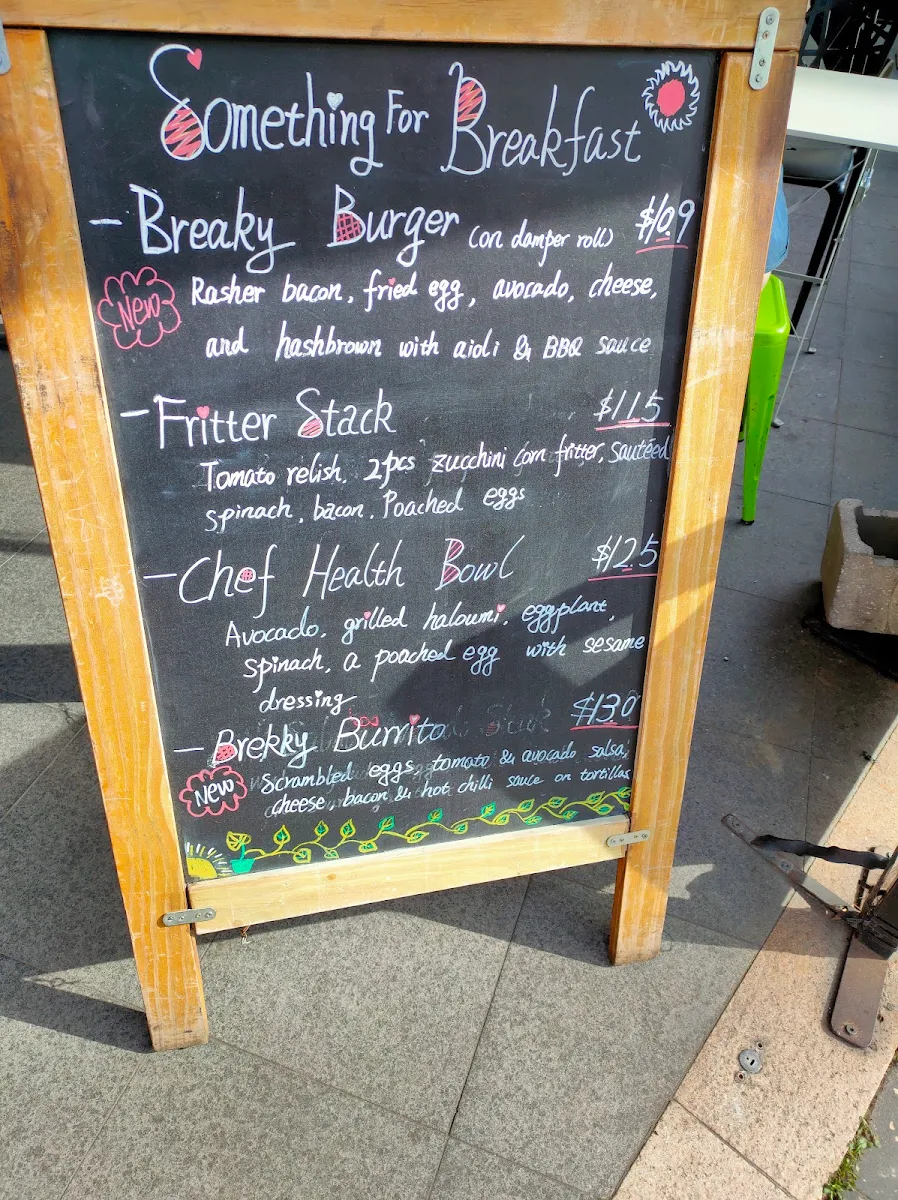 Something For Breakfast
- Breaky Burger (on damper roll) $10.9
New
Rasher bacon, fried egg, avocado, cheese,
and hashbrown with aioli & BBQ sauce
- Fritter Stack $11.5
Tomato relish, 2pcs zucchini corn fritter, sautéed
spinach, bacon, Poached eggs
- Chef Health Bowl $12.5
Avocado, grilled haloumi, eggplant,
spinach, a poached egg with sesame
dressing
- Brekky Burrito $13.0
New
Scrambled eggs, tomato & avocado salsa,
cheese, bacon & hot chilli sauce on tortillas